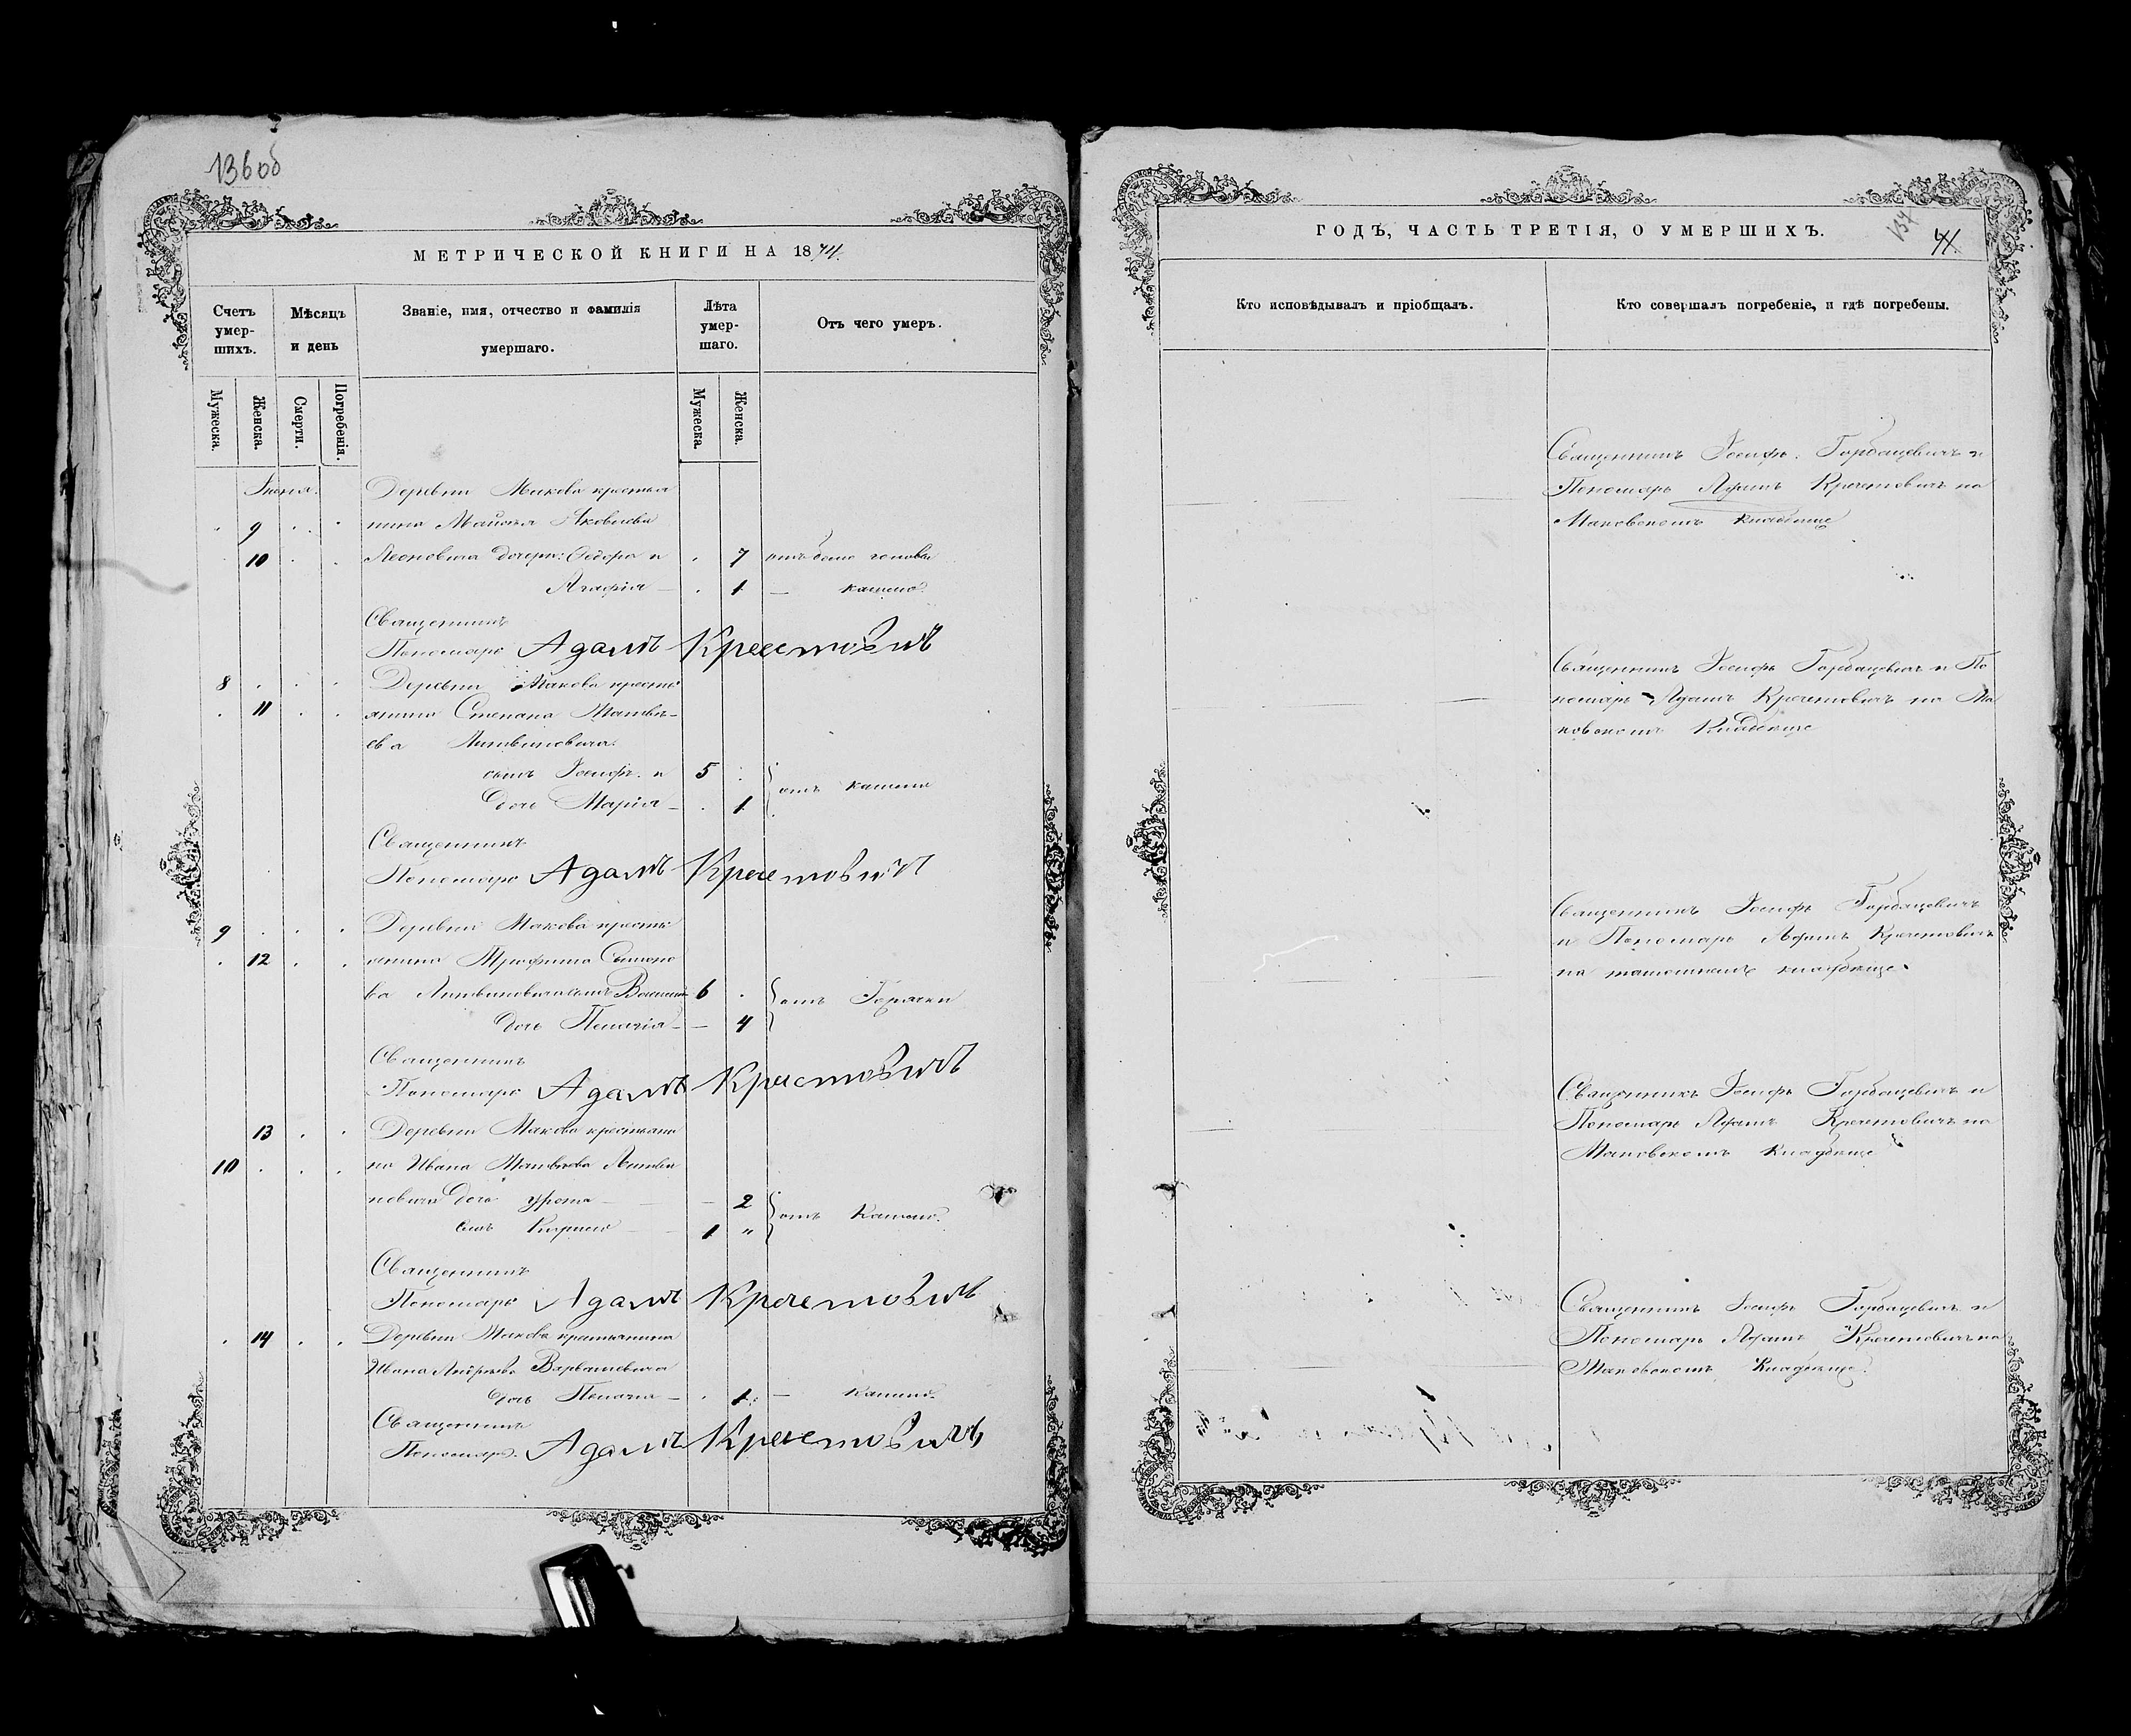 136об
МЕТРИЧЕСКОЙ КНИГИ НА 1874.
Счетъ умер-шихъ.
Мѣсяцъ и день
Званіе, имя, отчество и фамилія умершаго.
Лѣта умер-шаго.
Отъ чего умеръ.
Мужеска.
Женска.
Смерти.
Погребенія.
Мужеска.
Женска.
Деревни Макова крестья
9 нина Яковлева
10 Леоновича дочери: Ѳедора и 7
Агафія 1 кашлю
Священникъ
Пономарь Адамъ Кречетовичъ
8 Деревни Макова кресть
11 янина Степана Матвѣ-
ева Литвиновича
сынъ Іосифъ и 5
дочь Марія 1 отъ кашлю
Священникъ
Пономарь Адамъ Кречетовичъ
9 Деревни Макова кресть
12 янина Трофима Симоно
ва Литвиновича сынъ 6 отъ Горячки
дочь Пелагія 4
Священникъ
Пономарь Адамъ Кречетовичъ
13 Деревни Макова крестьяни
10 на Ивана Матвѣева Литви
новича дочь 2 отъ Кашлю
сынъ 1 "
Священникъ
Пономарь Адамъ Кречетовичъ
14 Деревни Макова крестьянина
Ивана Андреева Варвашевича
дочь Пелагія 1 кашлю
Священникъ
Пономарь Адамъ Кречетовичъ
ГОДЪ, ЧАСТЬ ТРЕТІЯ, О УМЕРШИХЪ.
137
Кто исповѣдывалъ и пріобщалъ.
Кто совершалъ погребеніе, и гдѣ погребены.
Священникъ Іосифъ Горбацевичъ и
Пономарь Адамъ Кречетовичъ на
Маковскомъ кладбище
Священникъ Іосифъ Горбацевичъ и По
номарь Адамъ Кречетовичъ на Ма
ковскомъ Кладбище
Священникъ Іосифъ Горбацевичъ
и Пономарь Адамъ Кречетовичъ
на кладбище
Священникъ Іосифъ Горбацевичъ и
Пономарь Адамъ Кречетовичъ на
Маковскомъ Кладбище
Священникъ Іосифъ Горбацевичъ и
Пономарь Адамъ Кречетовичъ на
Маковскомъ Кладбище